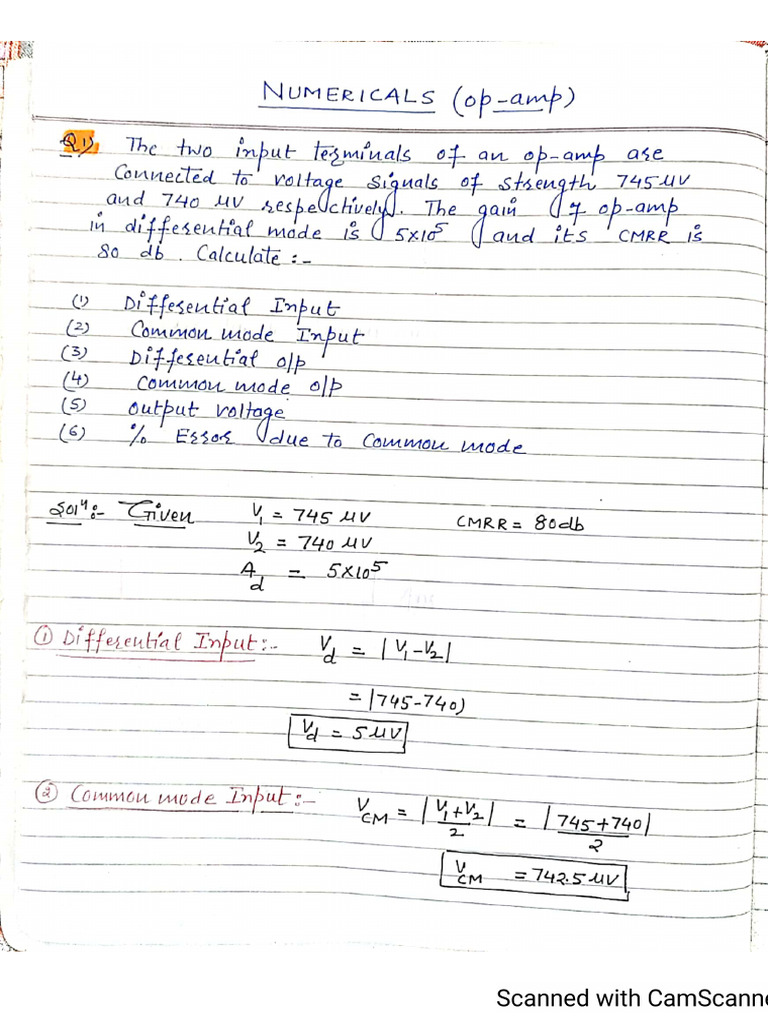 NUMERICALS (op-amp)
Q1) The two input terminals of an op-amp are
Connected to voltage signals of strength 745 μV
and 740 μV respectively. The gain of op-amp
in differential mode is 5×10⁵ and its CMRR is
80 db. Calculate :-
(1) Differential Input
(2) Common mode Input
(3) Differential o/p
(4) Common mode o/p
(5) output voltage
(6) % Error due to Common mode
Solⁿ:- Given V₁ = 745 μV CMRR = 80db
V₂ = 740 μV
A_d = 5×10⁵
① Differential Input:- V_d = |V₁-V₂|
= |745-740)
V_d = 5μV
② Common mode Input:- V_CM = |V₁+V₂|/2 = |745+740|/2
V_CM = 742.5 μV
Scanned with CamScanne